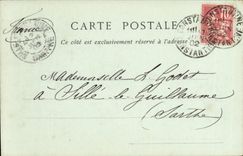 CARTE POSTALE
France
Ce côté est exclusivement réservé à l'adresse
Mademoiselle S. Godet
à Sillé le Guillaume
Sarthe